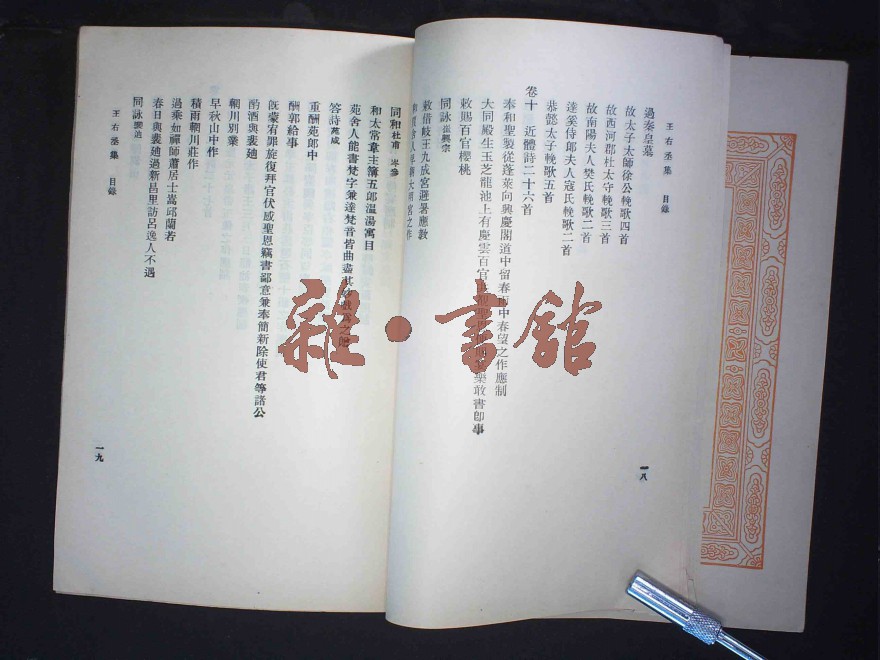 王右丞集 目錄
過秦皇墓
故太子太師徐公輓歌四首
故西河郡杜太守輓歌三首
故南陽夫人樊氏輓歌二首
達奚侍郎夫人寇氏輓歌二首
恭懿太子輓歌五首
卷十 近體詩二十六首
奉和聖製從蓬萊向興慶閣道中留春雨中春望之作應制
大同殿生玉芝龍池上有慶雲百官 樂敢書卽事
敕賜百官櫻桃
同詠 崔興宗
敕借岐王九成宮避暑應教
和賈舍人早朝大明宮之作
一八
同和 杜甫 岑參
和太常韋主簿五郎溫湯寓目
苑舍人能書梵字兼達梵音皆曲盡其妙戲爲之贈
答詩 苑咸
重酬苑郎中
酬郭給事
旣蒙宥罪旋復拜官伏感聖恩竊書鄙意兼奉簡新除使君等諸公
酌酒與裴迪
輞川別業
早秋山中作
積雨輞川莊作
過乘如禪師蕭居士嵩邱蘭若
春日與裴迪過新昌里訪呂逸人不遇
同詠 裴迪
王右丞集 目錄
一九
雜·書館